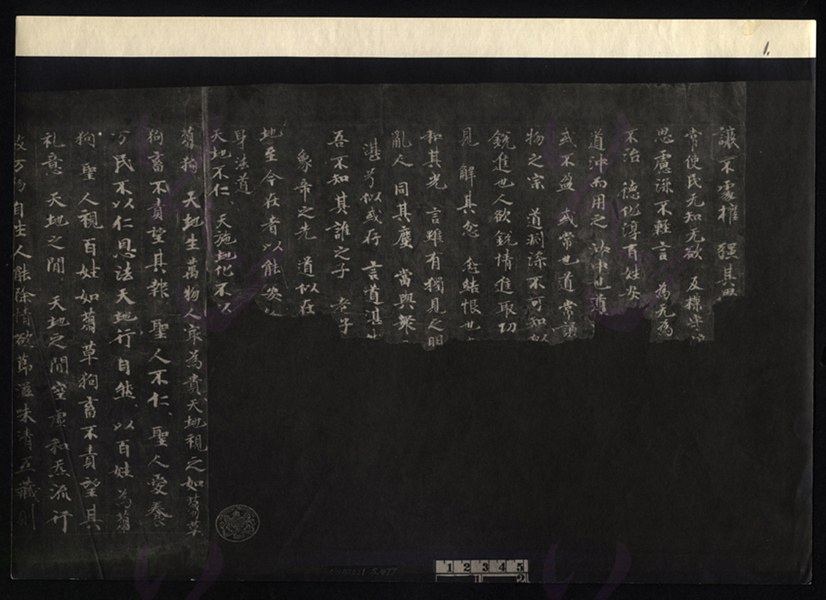 讓不處權 強其
常使民无知无欲 反樸守
思慮深不輕言 為无為
不治 德化淳百姓安
道沖而用之 沖中也道
或不盈 或常也道常謙
物之宗 道渕深不可知似
銳進也人欲銳情進取功
見 解其忿 忿結恨也
和其光 言雖有獨見之明
亂人 同其塵 當與衆
湛兮似或存 言道湛
吾不知其誰之子 老子
象帝之先 道似在
地至今在者以能安
身法道
天地不仁 天施地化不以
芻狗 天地生萬物人㝡為貴天地視之如芻草
狗畜不責望其報 聖人不仁 聖人愛養
万民不以仁恩法天地行自然 以百姓為芻
狗 聖人視百姓如芻草狗畜不責望其
礼意 天地之間 天地之間空虛和炁流行
故万物自生人能除情欲節滋味清五藏則
1.
1 2 3 4 5